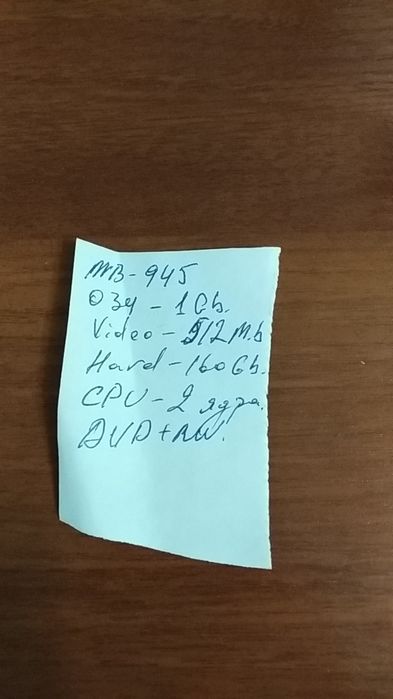 MB-945
ОЗУ - 1Gb.
Video - 512Mb
Hard - 160Gb.
CPU - 2 ядра.
DVD+RW.